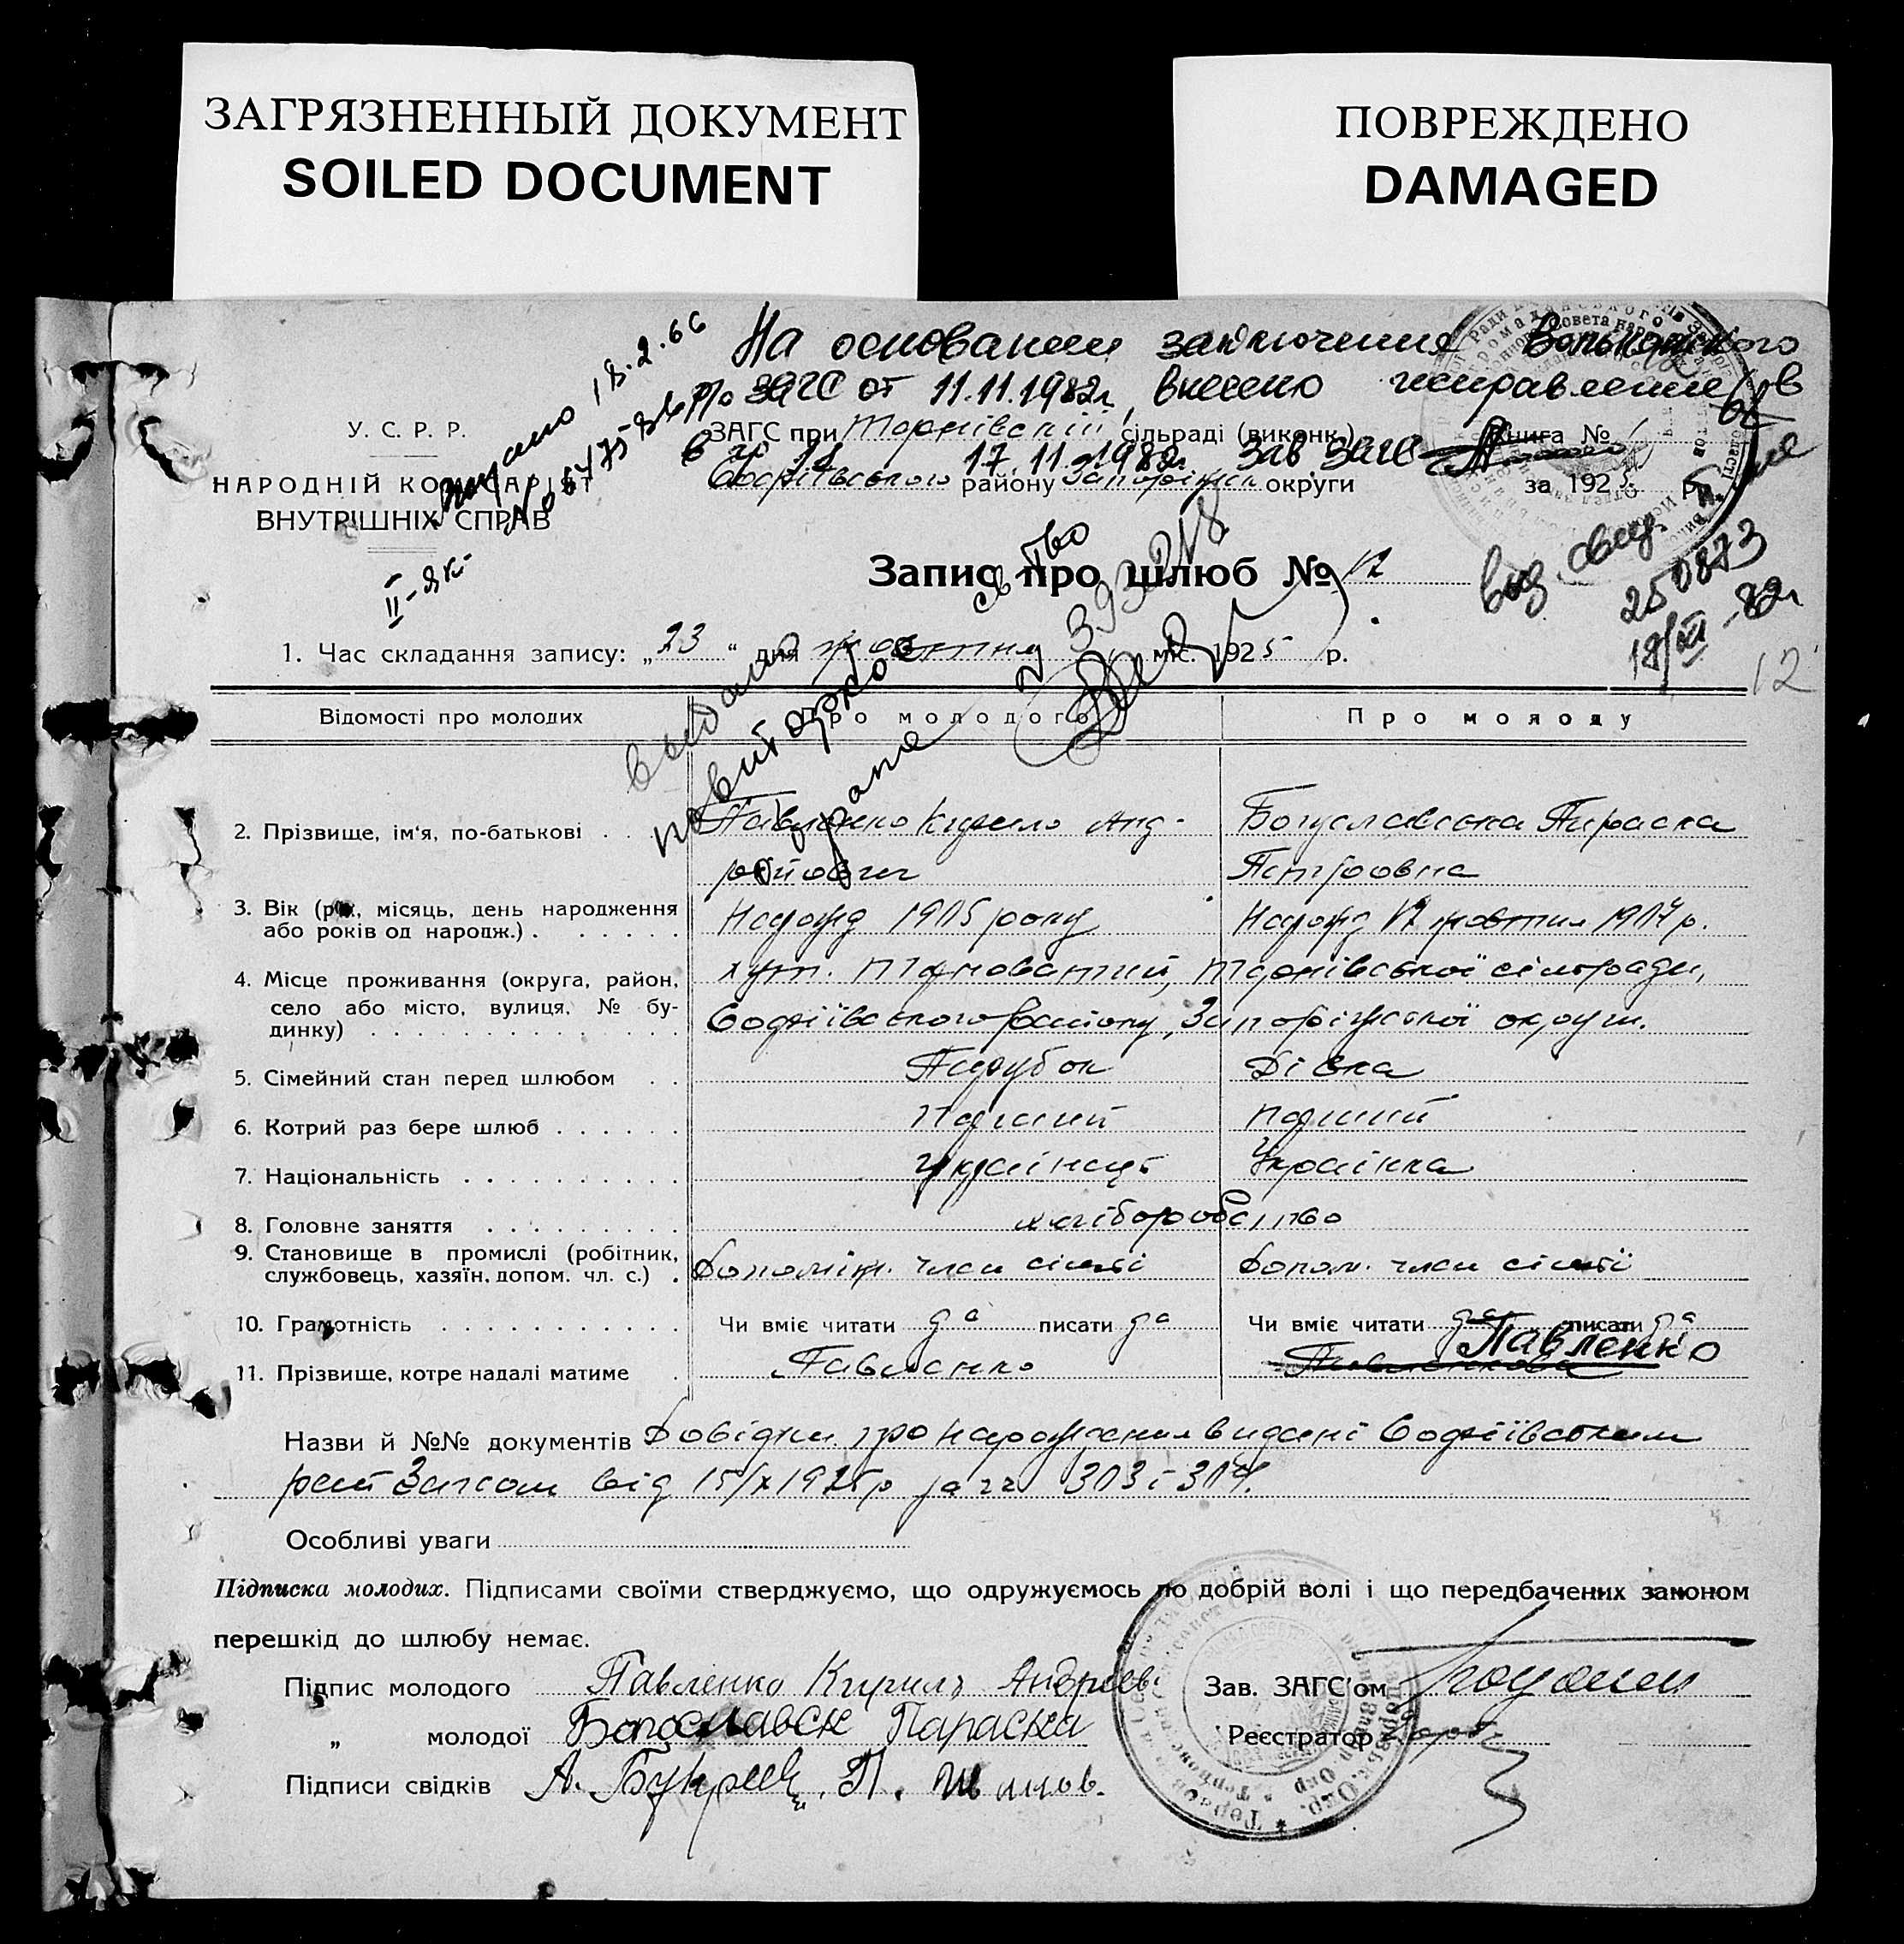 ЗАГРЯЗНЕННЫЙ ДОКУМЕНТ
SOILED DOCUMENT
ПОВРЕЖДЕНО
DAMAGED
На основании заключения Вольнянского
ЗАГС от 11.11.1982г, внесено исправление в
17.11.1982г. Зав ЗАГС
У. С. Р. Р.
НАРОДНІЙ КОМІСАРІЯТ
ВНУТРІШНІХ СПРАВ
18.2.66
II-як-
ЗАГС при сільраді (виконк.)
району округи
Книга №
за 1925 р.
Запис про шлюб № 12
выд. свид.
250873
18/XI-82г
12
1. Час складання запису: „23“ дня жовтня міс. 1925 р.
выдано св-тво
повитор
393218
Відомості про молодих
Про молодого
Про молоду
2. Прізвище, ім'я, по-батькові
Павленко Кирило Анд-
рійович
Богуславська Параска
Петровна
3. Вік (рік, місяць, день народження
або років од народж.)
Народ 1905 року
Народ 12 жовтня 1907 р.
4. Місце проживання (округа, район,
село або місто, вулиця, № бу-
динку)
хут. сільради,
Запорізької округи.
5. Сімейний стан перед шлюбом
Парубок
Дівка
6. Котрий раз бере шлюб
перший
перший
7. Національність
Українець
Українка
8. Головне заняття
хліборобство
9. Становище в промислі (робітник,
службовець, хазяїн, допом. чл. с.)
допоміж. член сімії
допом. член сімії
10. Грамотність
Чи вміє читати да писати да
Чи вміє читати да писати да
11. Прізвище, котре надалі матиме
Павленко
Павленкова Павленко
Назви й №№ документів Довідки про народження видані
рай Загсом від 15/X 1925 р за чч 303 і 304.
Особливі уваги
Підписка молодих. Підписами своїми стверджуємо, що одружуємось по добрій волі і що передбачених законом
перешкід до шлюбу немає.
Підпис молодого Павленко Кирилъ Андріев.
„ молодої Богославск Параска
Підписи свідків А. П.
Зав. ЗАГС'ом
Реєстратор